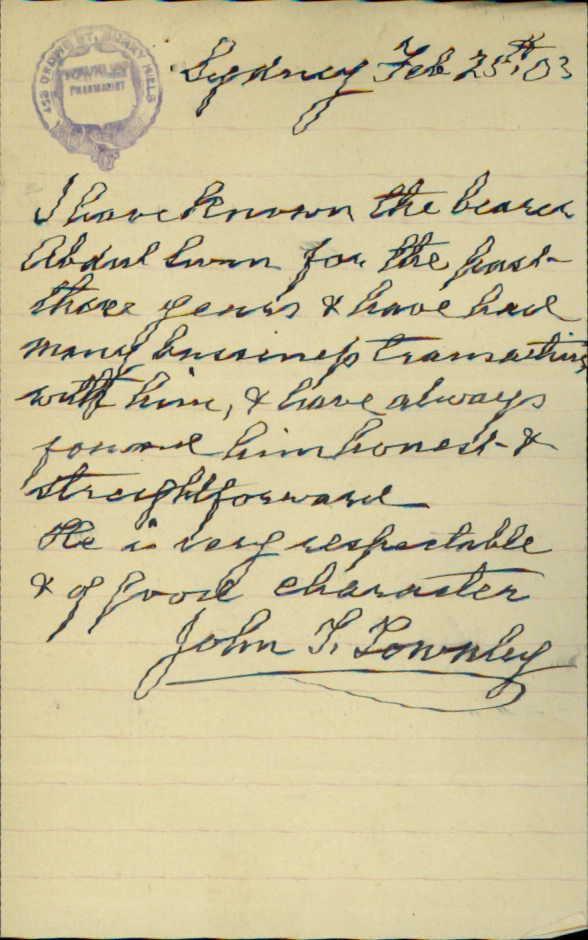 Sydney Feb 25th, 03
CROWN ST. SURRY HILLS
PHARMACIST
I have known the bearer
Abdul for the past
three years & have had
many business transactions
with him, & have always
found him honest &
streightforward
He is very respectable
& of good character
John T. Townley